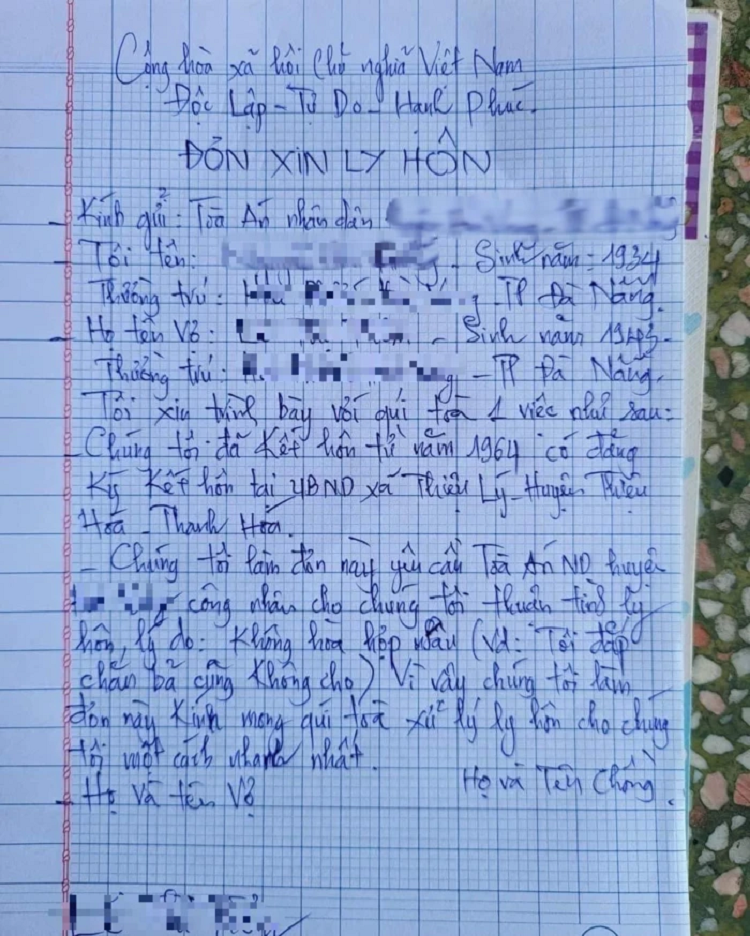 Cộng hòa xã hội Chủ nghĩa Việt Nam
Độc Lập - Tự Do - Hạnh Phúc.
ĐƠN XIN LY HÔN
Kính gửi: Toà Án nhân dân
Tôi tên: - Sinh năm: 1934
Thường trú: - TP Đà Nẵng.
Họ tên Vợ: - Sinh năm 1943.
Thường trú: - TP Đà Nẵng.
Tôi xin trình bày với quí toà 1 việc như sau:
- Chúng tôi đã Kết hôn từ năm 1964 có đăng
Ký Kết hôn tại UBND xã Thiệu Lý - Huyện Thiệu
Hóa - Thanh Hóa.
- Chúng tôi làm đơn này yêu cầu Toà Án ND huyện
công nhận cho chúng tôi thuận tình ly
hôn, lý do: Không hòa hợp nhau (Vd: Tôi đắp
chăn bà cũng Không cho) Vì vậy chúng tôi làm
đơn này Kính mong quí toà xử lý ly hôn cho chúng
tôi một cách nhanh nhất.
Họ và Tên Chồng.
- Họ và tên Vợ